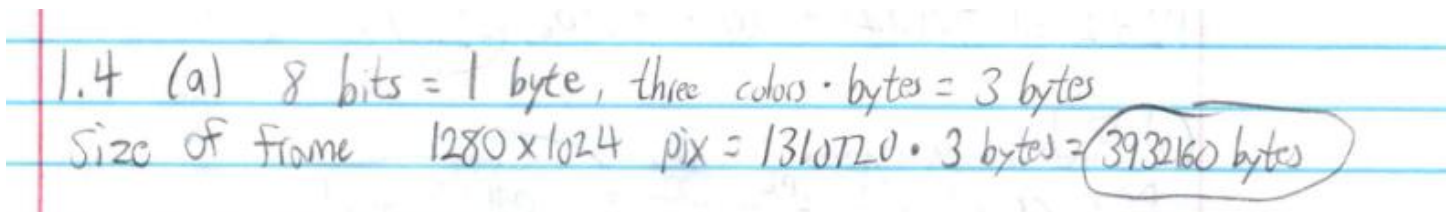 1.4 (a) 8 bits = 1 byte, three colors · bytes = 3 bytes
Size of frame 1280 x 1024 pix = 1310720 · 3 bytes = 3932160 bytes